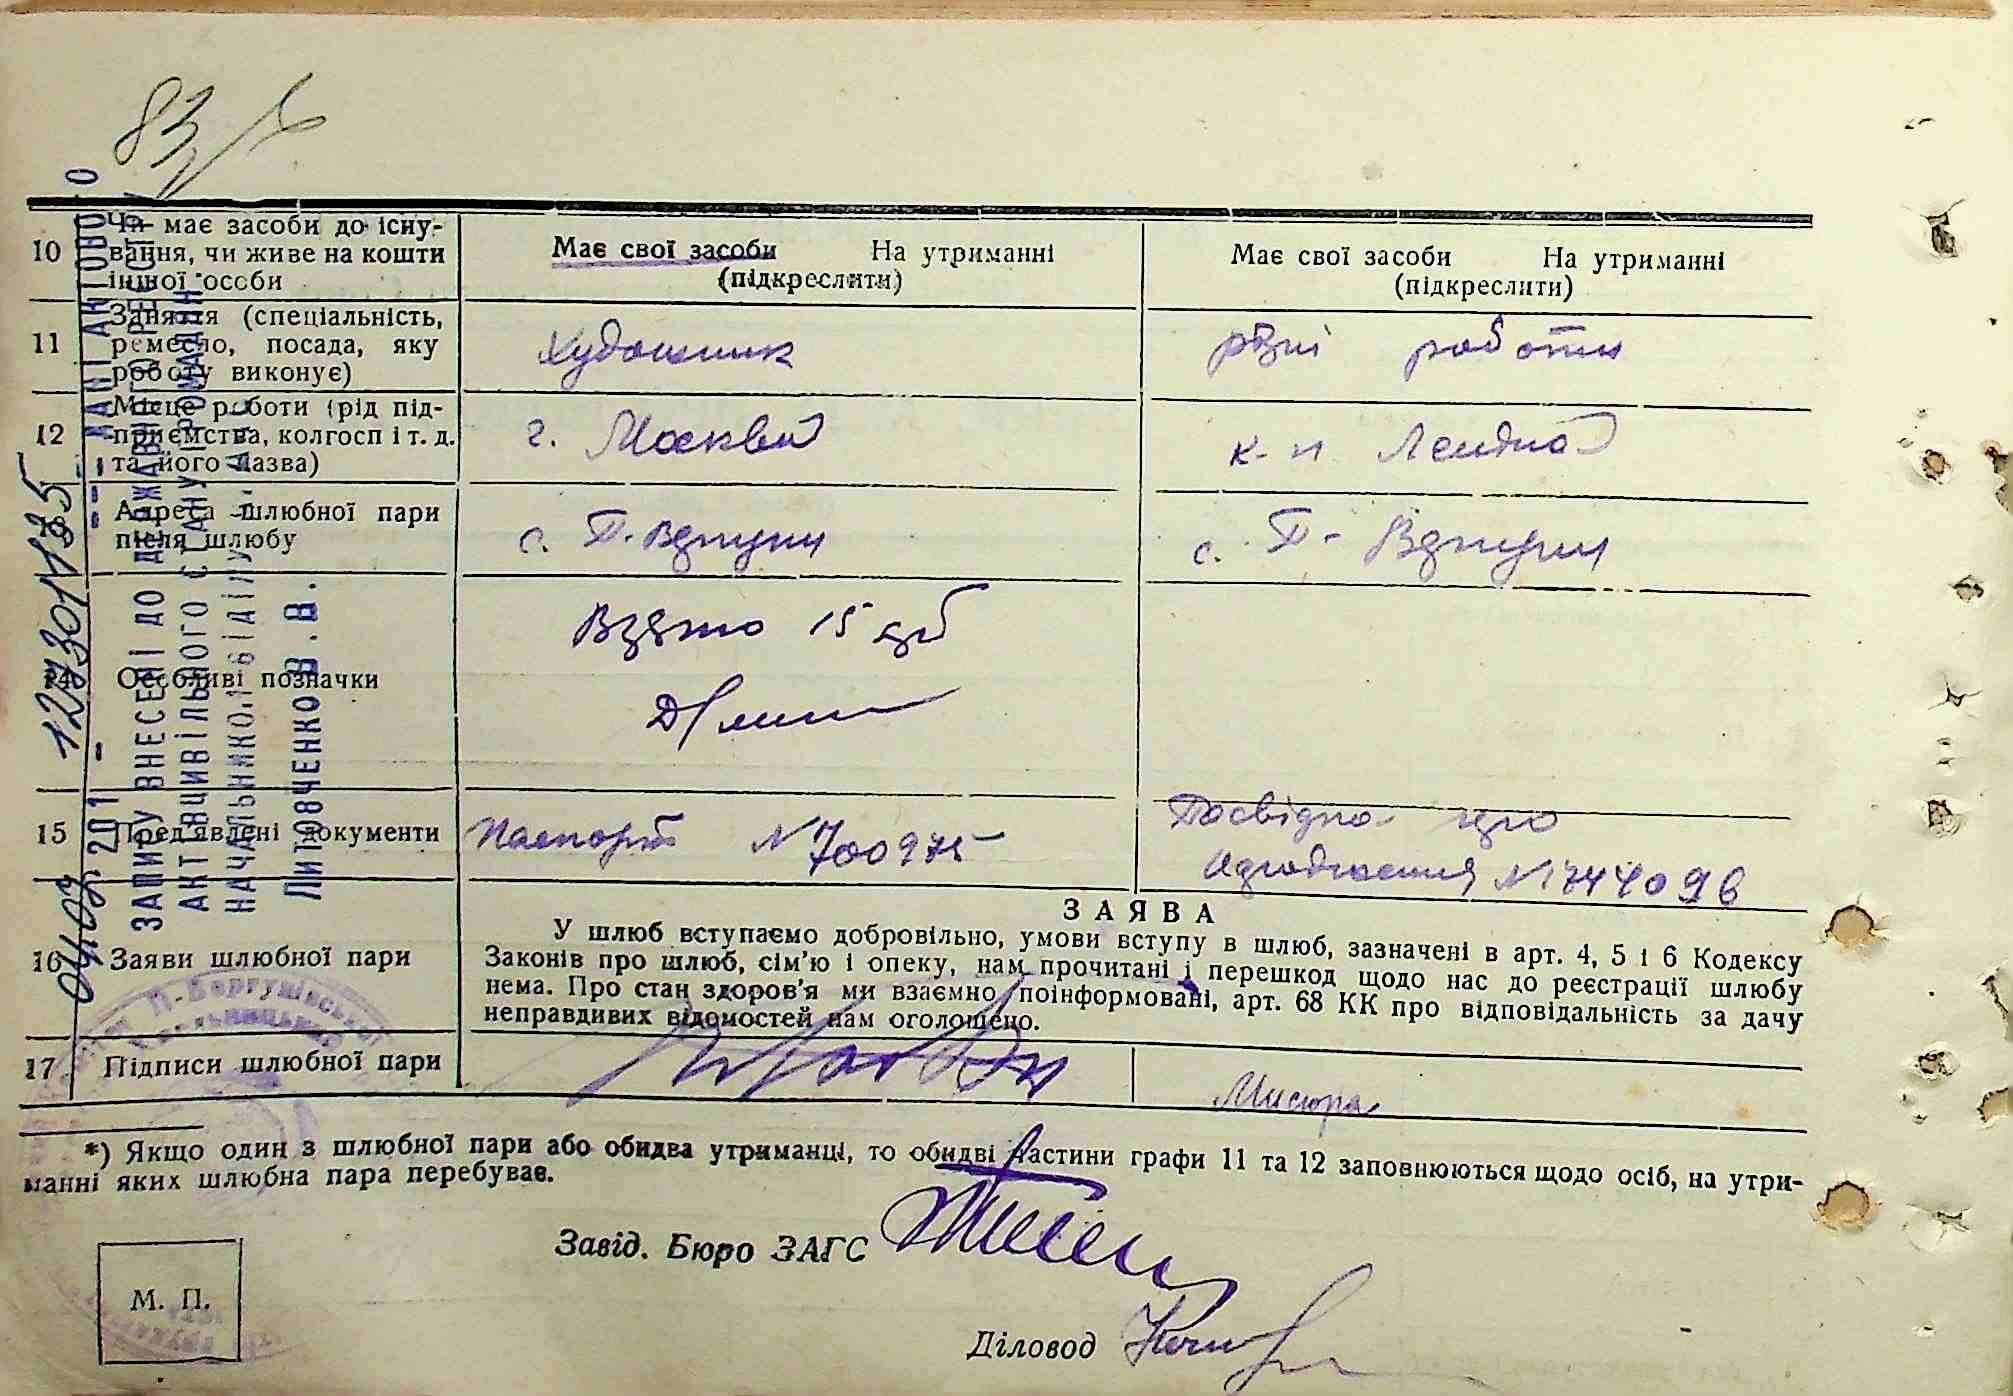 83
10
Чи має засоби до існу-
вання, чи живе на кошти
іншої особи
Має свої засоби На утриманні
(підкреслити)
Має свої засоби На утриманні
(підкреслити)
11
Заняття (спеціальність,
ремесло, посада, яку
роботу виконує)
Художник
різні роботи
12
Місце роботи (рід під-
приємства, колгосп і т. д.
та його назва)
г. Москва
к-п
Адреса шлюбної пари
після шлюбу
с. П-Вергуни
с. П- Вергуни
14
Особливі позначки
Взято 15 крб
15
Пред'явлені документи
Паспорт N 700975
Посвідка про
народження N
16
Заяви шлюбної пари
ЗАЯВА
У шлюб вступаємо добровільно, умови вступу в шлюб, зазначені в арт. 4, 5 і 6 Кодексу
Законів про шлюб, сім'ю і опеку, нам прочитані і перешкод щодо нас до реєстрації шлюбу
нема. Про стан здоров'я ми взаємно поінформовані, арт. 68 КК про відповідальність за дачу
неправдивих відомостей нам оголошено.
17
Підписи шлюбної пари
Мисюра
*) Якщо один з шлюбної пари або обидва утриманці, то обидві частини графи 11 та 12 заповнюються щодо осіб, на утри-
манні яких шлюбна пара перебуває.
Завід. Бюро ЗАГС
М. П.
Діловод
ЗАПИС ВНЕСЕНІ ДО ДЕРЖАВНОГО РЕЄСТРУ
АКТІВ ЦИВІЛЬНОГО СТАНУ ГРОМАДЯН
НАЧАЛЬНИК ВІДІЛУ
Литовченко В.В.